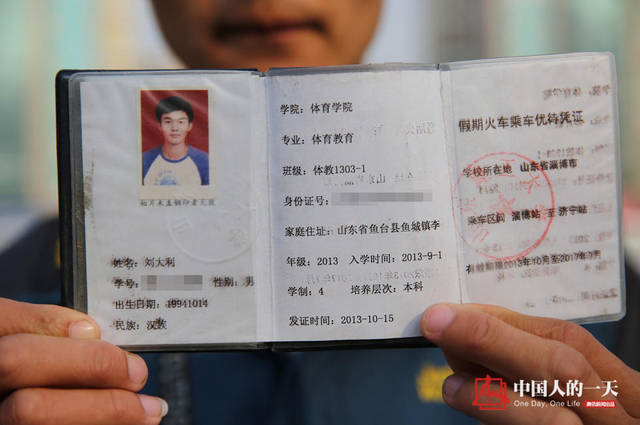 相片未盖钢印者无效
姓名：刘大利
学号： 性别：男
出生日期：19941014
民族：汉族
学院：体育学院
专业：体育教育
班级：体教1303-1
身份证号：
家庭住址：山东省鱼台县鱼城镇李
年级：2013 入学时间：2013-9-1
学制：4 培养层次：本科
发证时间：2013-10-15
假期火车乘车优待凭证
学校所在地 山东省淄博市
乘车区间 淄博站 至 济宁站
有效期限2013年10月至2017年7月
中国人的一天
One Day, One Life
腾讯新闻出品